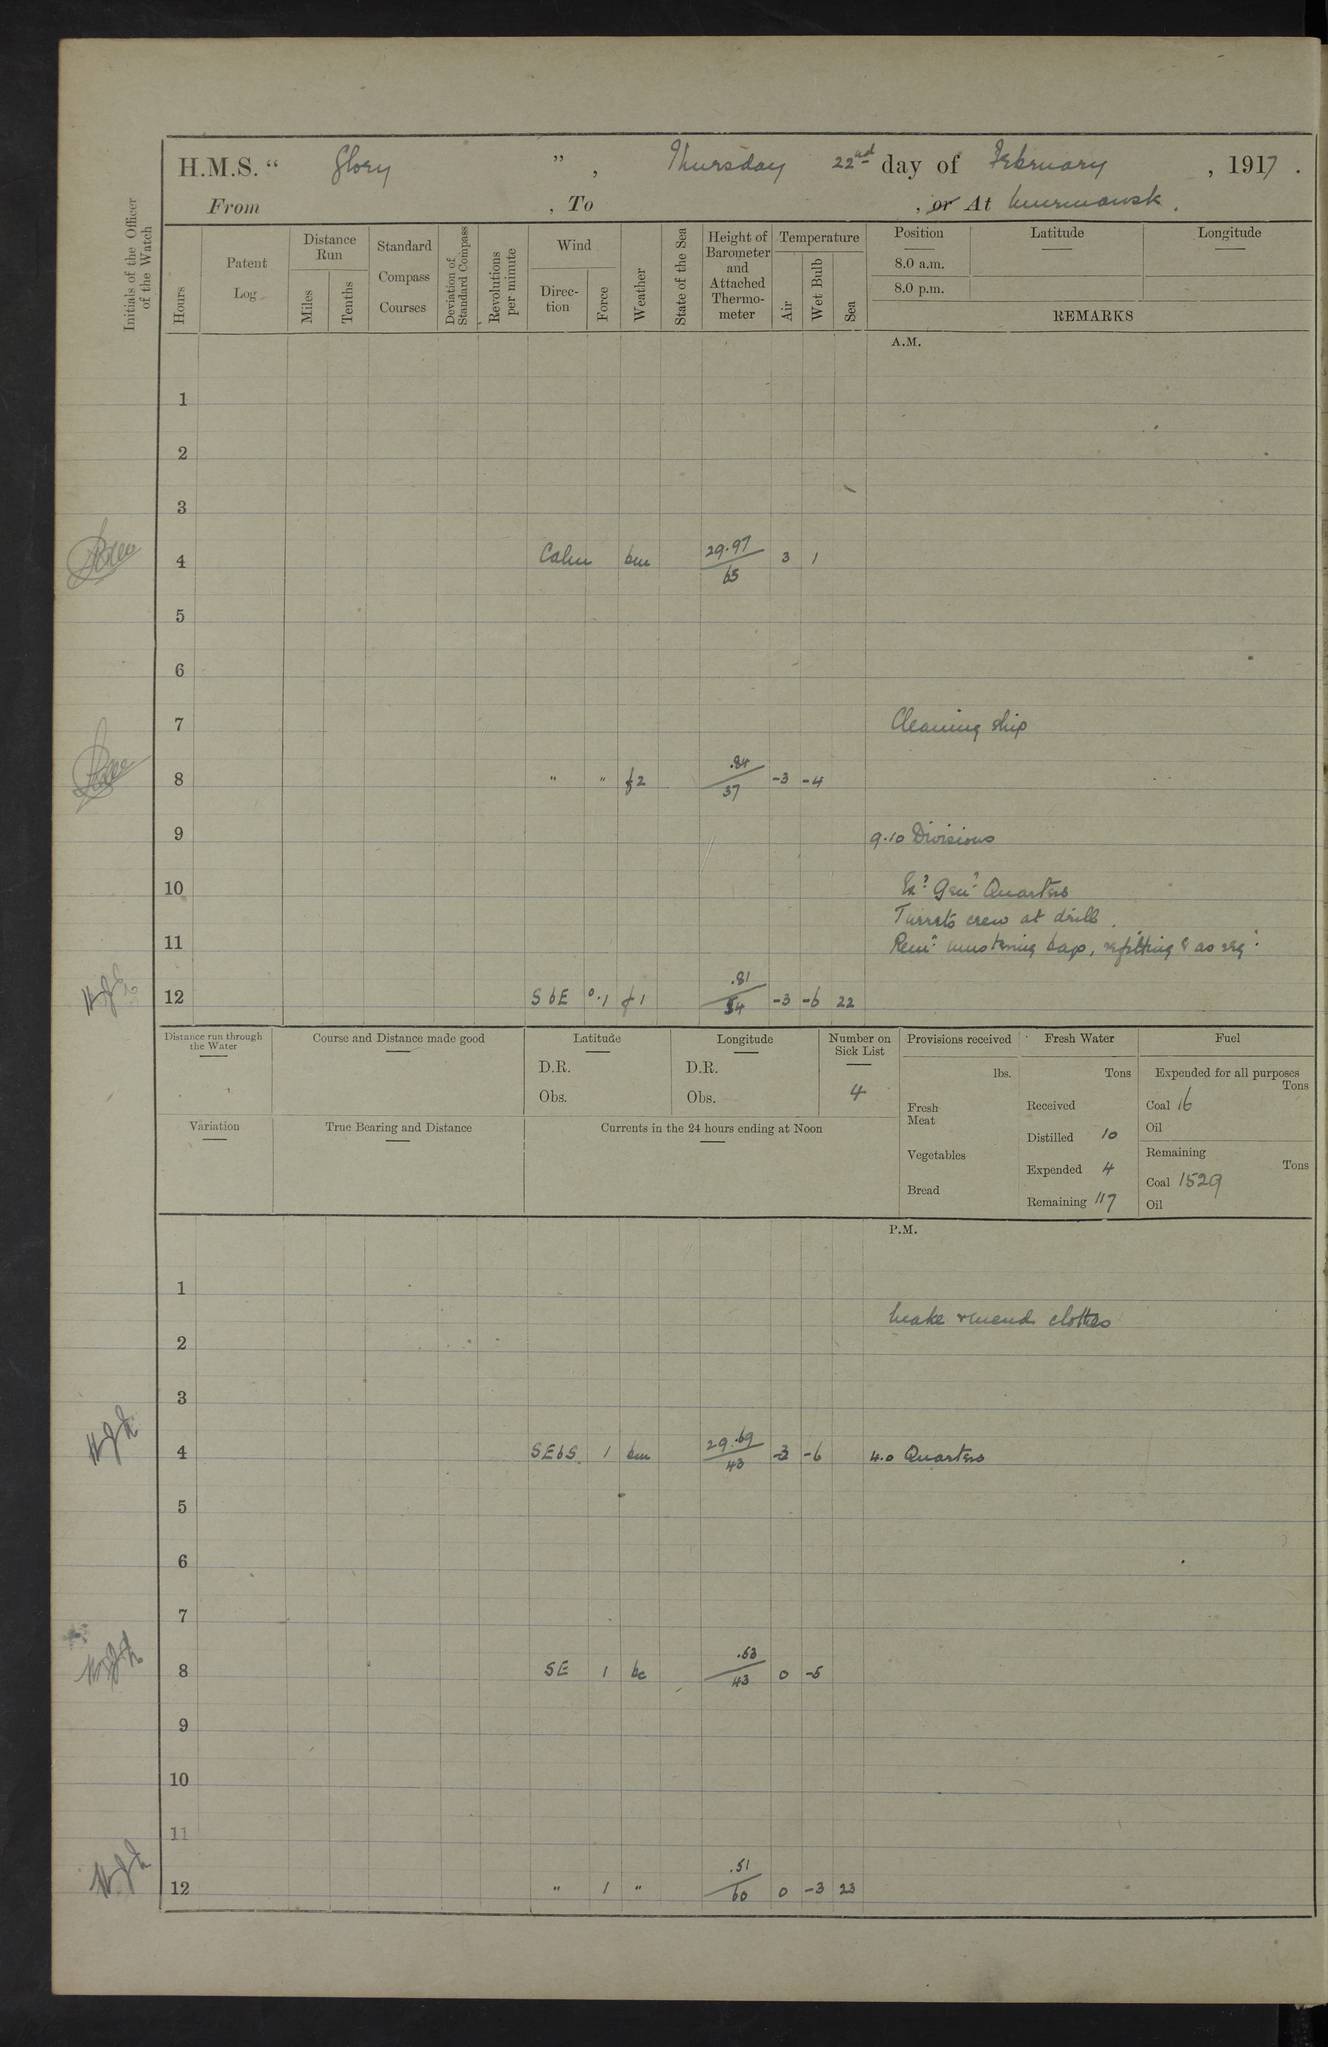 H.M.S. “ Glory ”, Thursday 22nd day of February, 1917.
From , To , or At Murmansk.
Initials of the Officer of the Watch
Hours
Patent Log
Distance Run
Miles
Tenths
Standard Compass Courses
Deviation of Standard Compass
Revolutions per minute
Wind
Direction
Force
Weather
State of the Sea
Height of Barometer and Attached Thermometer
Temperature
Air
Wet Bulb
Sea
Position
Latitude
Longitude
8.0 a.m.
8.0 p.m.
REMARKS
A.M.
1
2
3
4 Calm bm 29.97/65 3 1
5
6
7 Cleaning ship
8 " " f2 .84/37 -3 -4
9 9.10 Divisions
10 Ex? Gen? Quarters
Turrets crew at drill.
11 Rem: mustering bags, refitting & as req:
12 SbE 0.1 f1 .81/54 -3 -6 22
Distance run through the Water
Course and Distance made good
Latitude
D.R.
Obs.
Longitude
D.R.
Obs.
Number on Sick List
4
Provisions received
lbs.
Fresh Meat
Vegetables
Bread
Fresh Water
Tons
Received
Distilled 10
Expended 4
Remaining 117
Fuel
Expended for all purposes
Tons
Coal 16
Oil
Remaining
Tons
Coal 1529
Oil
Variation
True Bearing and Distance
Currents in the 24 hours ending at Noon
P.M.
1
make & mend clothes
2
3
4 SEbS 1 bm 29.69/43 -3 -6 4.0 Quarters
5
6
7
8 SE 1 bc .63/43 0 -5
9
10
11
12 " 1 " .51/60 0 -3 23